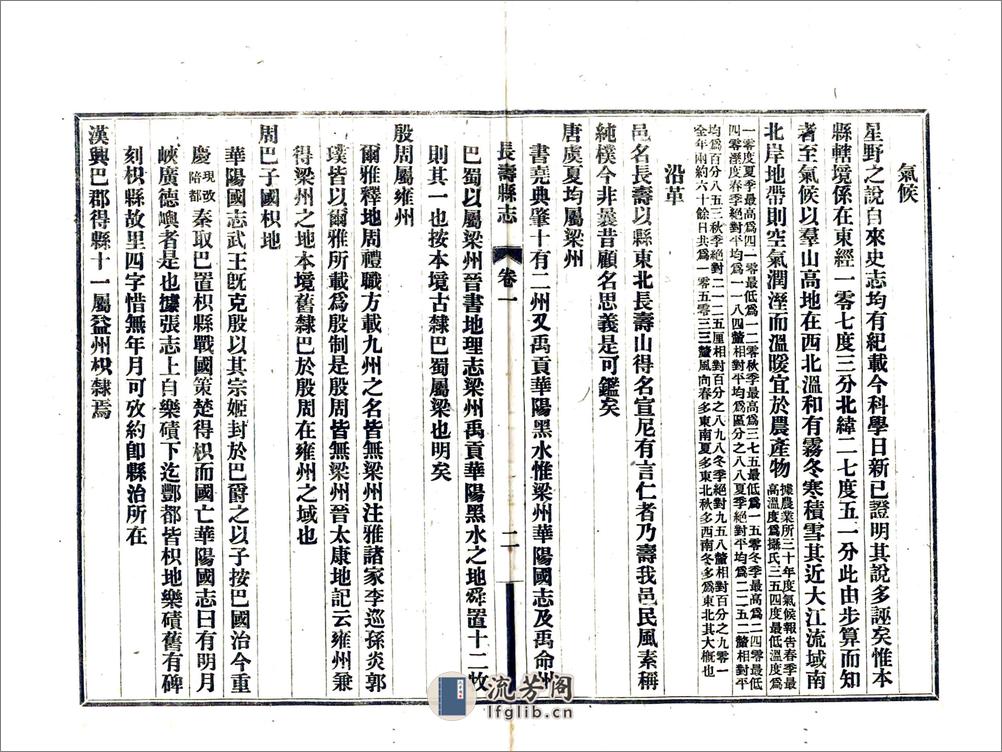 氣候
星野之說自來史志均有紀載今科學日新已證明其說多誣矣惟本
縣轄境係在東經一零七度三分北緯二七度五一分此由步算而知
者至氣候以羣山高地在西北溫和有霧冬寒積雪其近大江流域南
北岸地帶則空氣潤溼而溫暖宜於農產物
據農業所三十年度氣候報告春季最
高溫度爲攝氏三五四度最低溫度爲
一零度夏季最高爲四一零最低爲一二零秋季最高爲三七五最低爲一五零冬季最高爲二四零最低
四零溼度春季絕對平均爲一一八四釐相對平均爲區分之八八夏季絕對平均爲二二五二釐相對平
均爲百分八五三秋季絕對二一二五厘相對百分之八九八冬季絕對九五八釐相對百分之九零一
全年雨約六十餘日共爲一零五零三三釐風向春多東南夏多東北秋多西南冬多爲東北其大槪也
沿革
邑名長壽以縣東北長壽山得名宣尼有言仁者乃壽我邑民風素稱
純樸今非曩昔顧名思義是可鑑矣
唐虞夏均屬梁州
書堯典肇十有二州又禹貢華陽黑水惟梁州華陽國志及禹命州
長壽縣志
卷一
二
巴蜀以屬梁州晉書地理志梁州禹貢華陽黑水之地舜置十二牧
則其一也按本境古隸巴蜀屬梁也明矣
殷周屬雍州
爾雅釋地周禮職方載九州之名皆無梁州注雅諸家李巡孫炎郭
璞皆以爾雅所載爲殷制是殷周皆無梁州晉太康地記云雍州兼
得梁州之地本境舊隸巴於殷周在雍州之域也
周巴子國枳地
華陽國志武王旣克殷以其宗姬封於巴爵之以子按巴國治今重
慶現改陪都秦取巴置枳縣戰國策楚得枳而國亡華陽國志曰有明月
峽廣德嶼者是也據張志上自樂磧下迄酆都皆枳地樂磧舊有碑
刻枳縣故里四字惜無年月可攷約卽縣治所在
漢興巴郡得縣十一屬益州枳隸焉
流芳閣
lfglib.cn